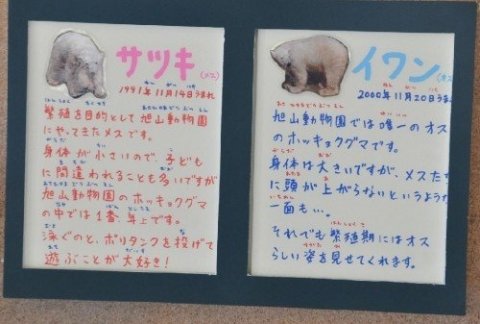 サツキ(メス)
1991年11月14日うまれ
繁殖を目的として旭山動物園
にやってきたメスです。
身体が小さいので、子ども
に間違われることも多いですが
旭山動物園のホッキョクグマ
の中では1番、年上です。
泳ぐのと、ポリタンクを投げて
遊ぶことが大好き!
イワン(オス
2000年11月20日うまれ
旭山動物園では唯一のオス
のホッキョクグマです。
身体は大きいですが、メスたち
に頭が上がらないというような
一面も。
それでも繁殖期にはオス
らしい姿を見せてくれます。